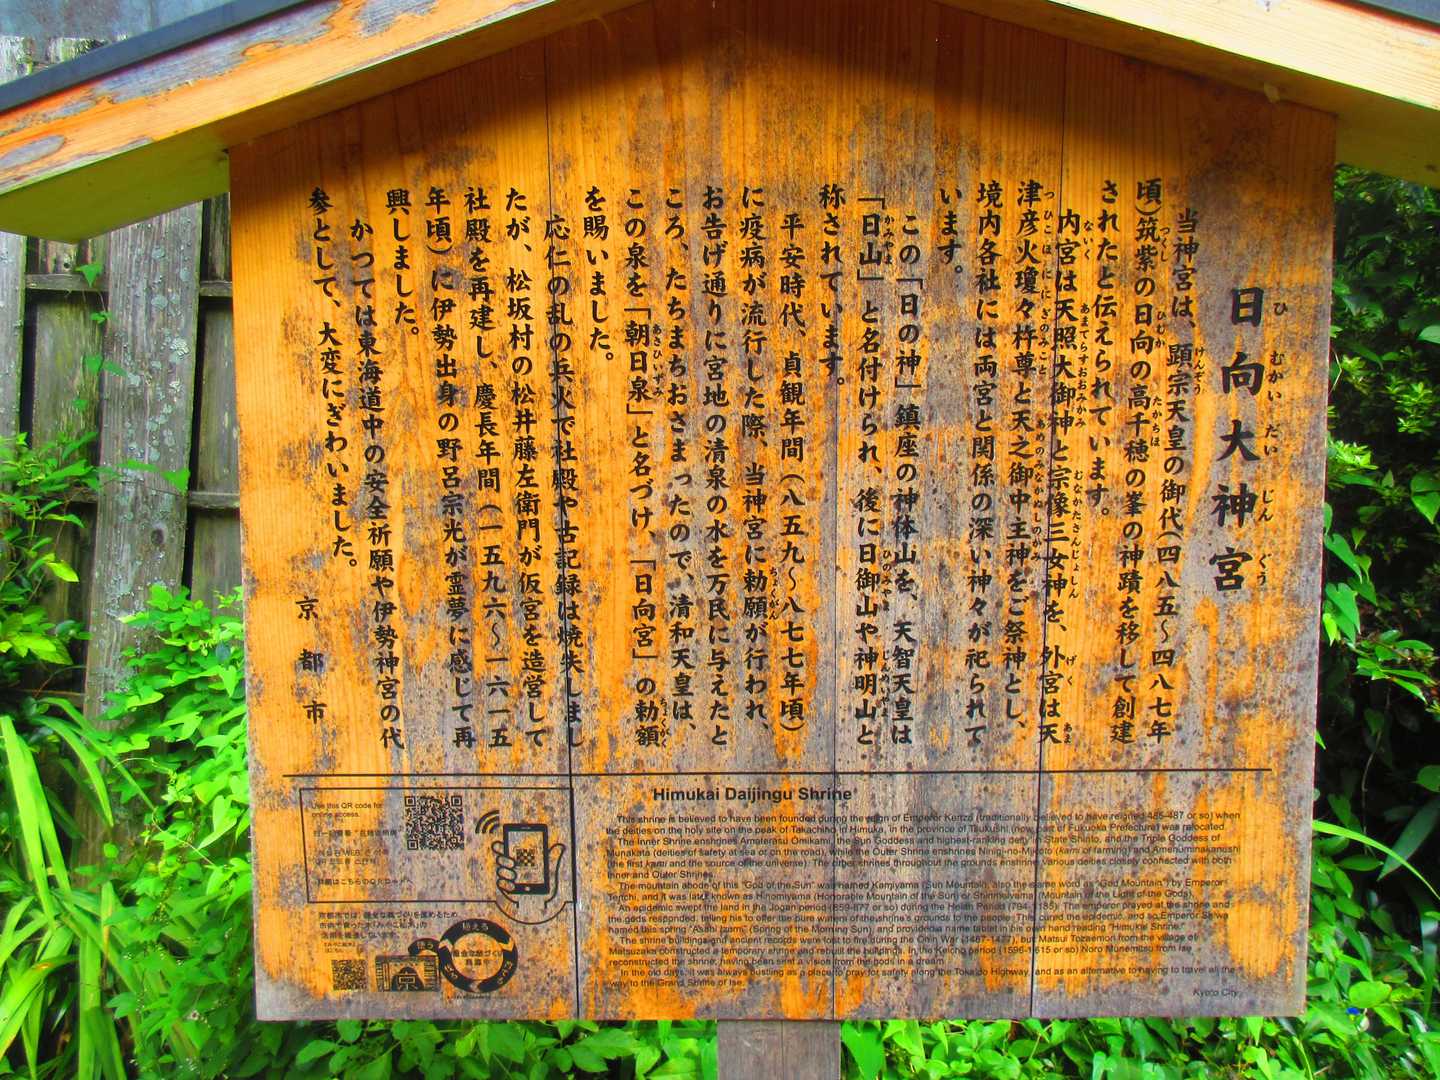 日向大神宮
当神宮は、顕宗天皇の御代(四八五〜四八七年
頃)筑紫の日向の高千穂の峯の神蹟を移して創建
されたと伝えられています。
内宮は天照大御神と宗像三女神を、外宮は天
津彦火瓊々杵尊と天之御中主神をご祭神とし、
境内各社には両宮と関係の深い神々が祀られて
います。
この「日の神」鎮座の神体山を、天智天皇は
「日山」と名付けられ、後に日御山や神明山と
称されています。
平安時代、貞観年間(八五九〜八七七年頃)
に疫病が流行した際、当神宮に勅願が行われ、
お告げ通りに宮地の清泉の水を万民に与えたと
ころ、たちまちおさまったので、清和天皇は、
この泉を「朝日泉」と名づけ、「日向宮」の勅額
を賜いました。
応仁の乱の兵火で社殿や古記録は焼失しまし
たが、松坂村の松井藤左衛門が仮宮を造営して
社殿を再建し、慶長年間(一五九六〜一六一五
年頃)に伊勢出身の野呂宗光が霊夢に感じて再
興しました。
かつては東海道中の安全祈願や伊勢神宮の代
参として、大変にぎわいました。
京都市
Himukai Daijingu Shrine
This shrine is believed to have been founded during the reign of Emperor Kenzo (traditionally believed to have reigned 485-487 or so) when
the deities on the holy site on the peak of Takachiho in Himuka, in the province of Tsukushi (now part of Fukuoka Prefecture) was relocated.
The Inner Shrine enshrines Amaterasu Omikami, the Sun Goddess and highest-ranking deity in State Shinto, and the Triple Goddess of
Munakata (deities of safety at sea or on the road), while the Outer Shrine enshrines Ninigi-no-Mikoto (kami of farming) and Amenominakanushi
(the first kami and the source of the universe). The other shrines throughout the grounds enshrine various deities closely connected with both
Inner and Outer Shrines.
The mountain abode of this "God of the Sun" was named Kamiyama (Sun Mountain, also the same word as "God Mountain") by Emperor
Tenchi, and it was later known as Hinomiyama (Honorable Mountain of the Sun) or Shinmeiyama (Mountain of the Light of the Gods).
An epidemic swept the land in the Jogan period (859-877 or so) during the Heian Period (794-1185). The emperor prayed at the shrine and
the gods responded, telling him to offer the pure waters of the shrine's grounds to the people. This cured the epidemic, and so Emperor Seiwa
named this spring "Asahi Izumi" (Spring of the Morning Sun), and provided a name tablet in his own hand reading "Himukai Shrine."
The shrine buildings and ancient records were lost to fire during the Onin War (1467-1477), but Matsui Tozaemon from the village of
Matsuzaka constructed a temporary shrine and rebuilt the buildings. In the Keicho period (1596-1615 or so) Noro Munemitsu from Ise
reconstructed the shrine, having been sent a vision from the gods in a dream.
In the old days, it was always bustling as a place to pray for safety along the Tokaido Highway, and as an alternative to having to travel all the
way to the Grand Shrine of Ise.
Kyoto City
Use this QR code for
online access.
詳細はこちらのQRコードへ